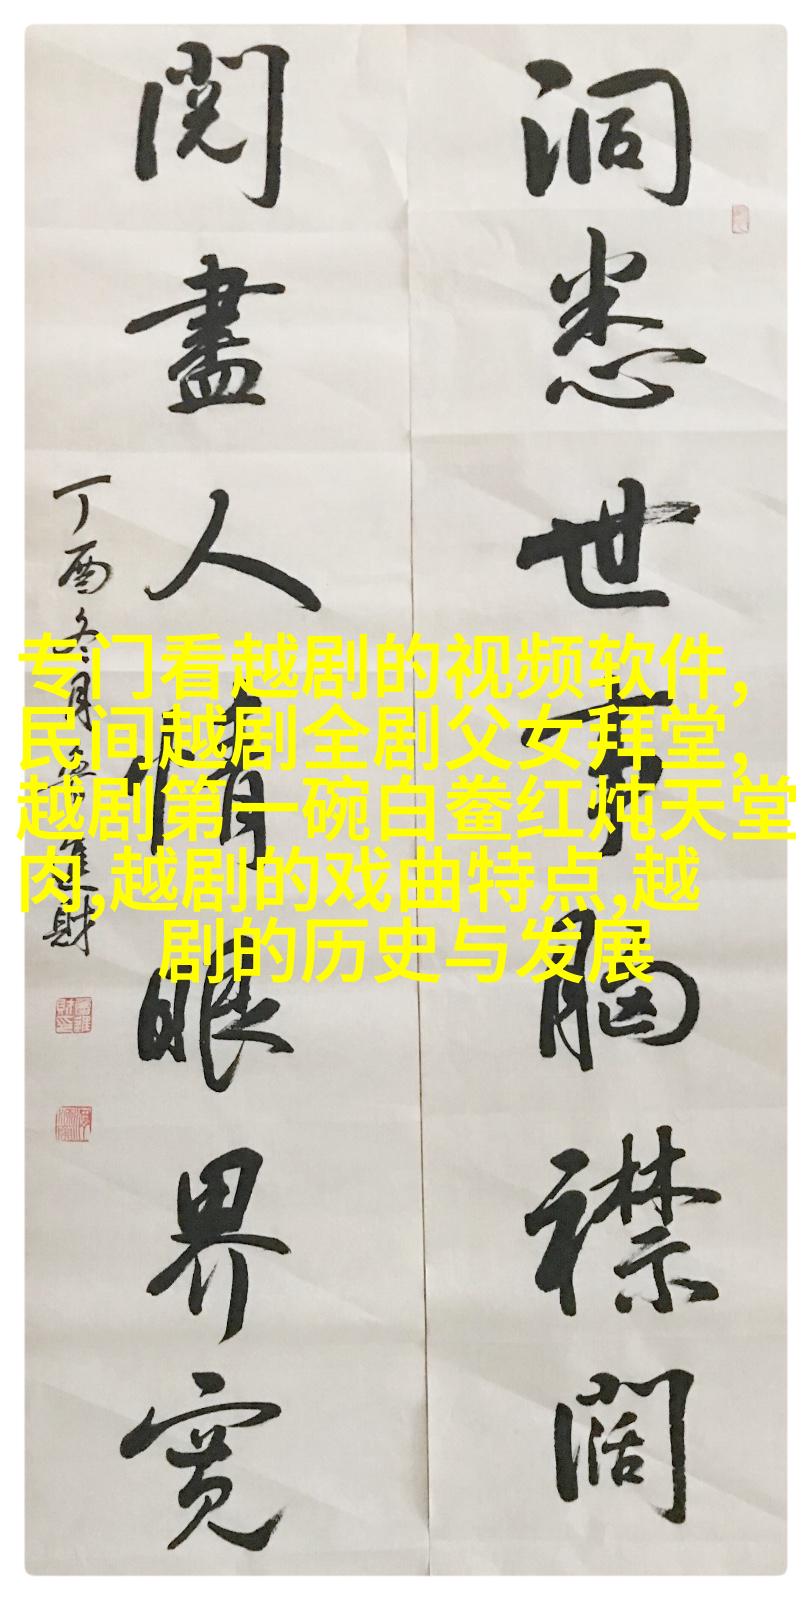 洞悉世事胸襟阔
阅尽人情眼界宽
丁酉冬月
進财
专门看越剧的视频软件,
民间越剧全剧父女拜堂,
越剧第一碗白鲞红炖天堂
肉,越剧的戏曲特点,越
剧的历史与发展